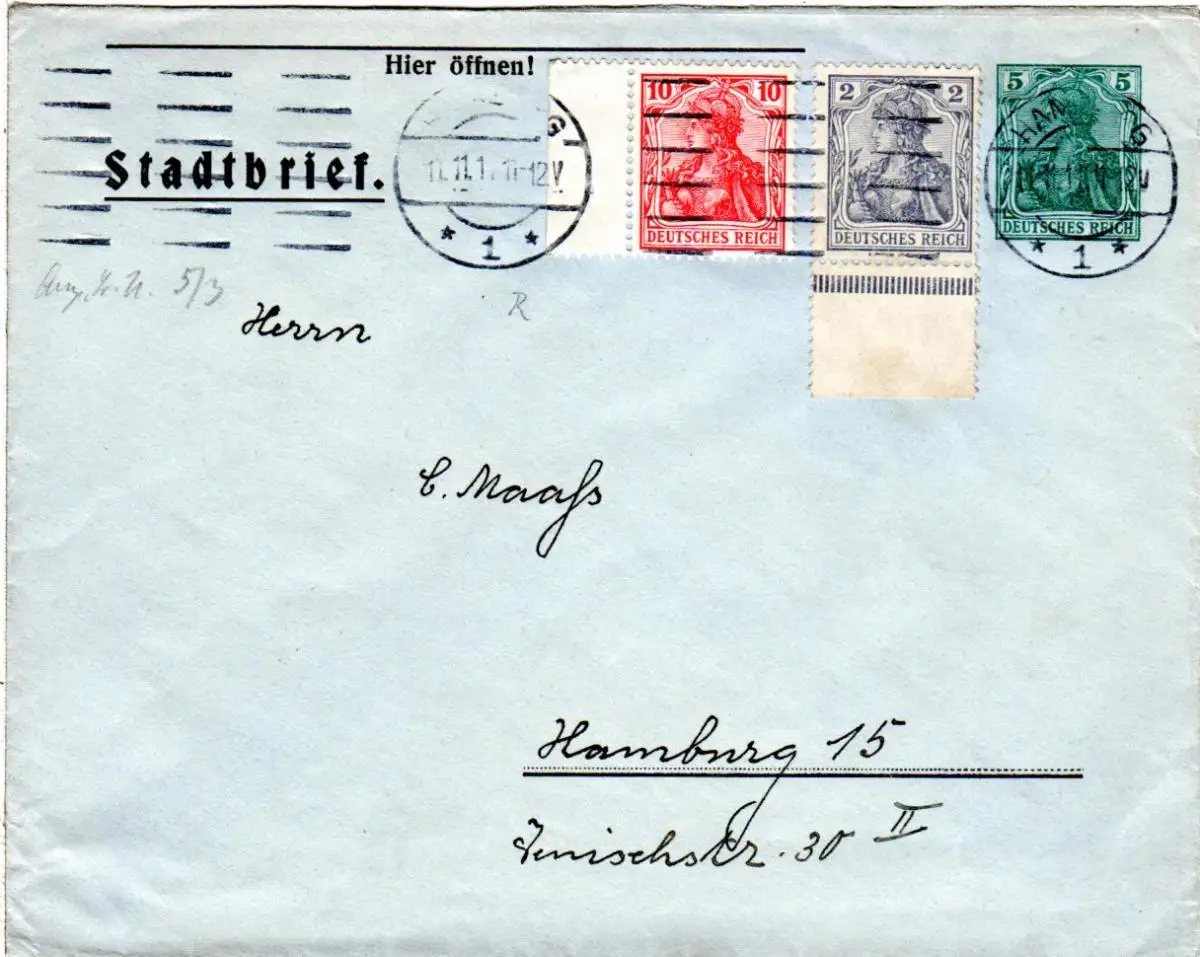 Hier öffnen!
Stadtbrief.
10 10
DEUTSCHES REICH
2 2
DEUTSCHES REICH
5 5
DEUTSCHES REICH
G
11.11.1 11-12V
* 1 *
HAM G
* 1 *
5/
R
Herrn
C. Maaß
Hamburg 15
Jenischstr. 30 II